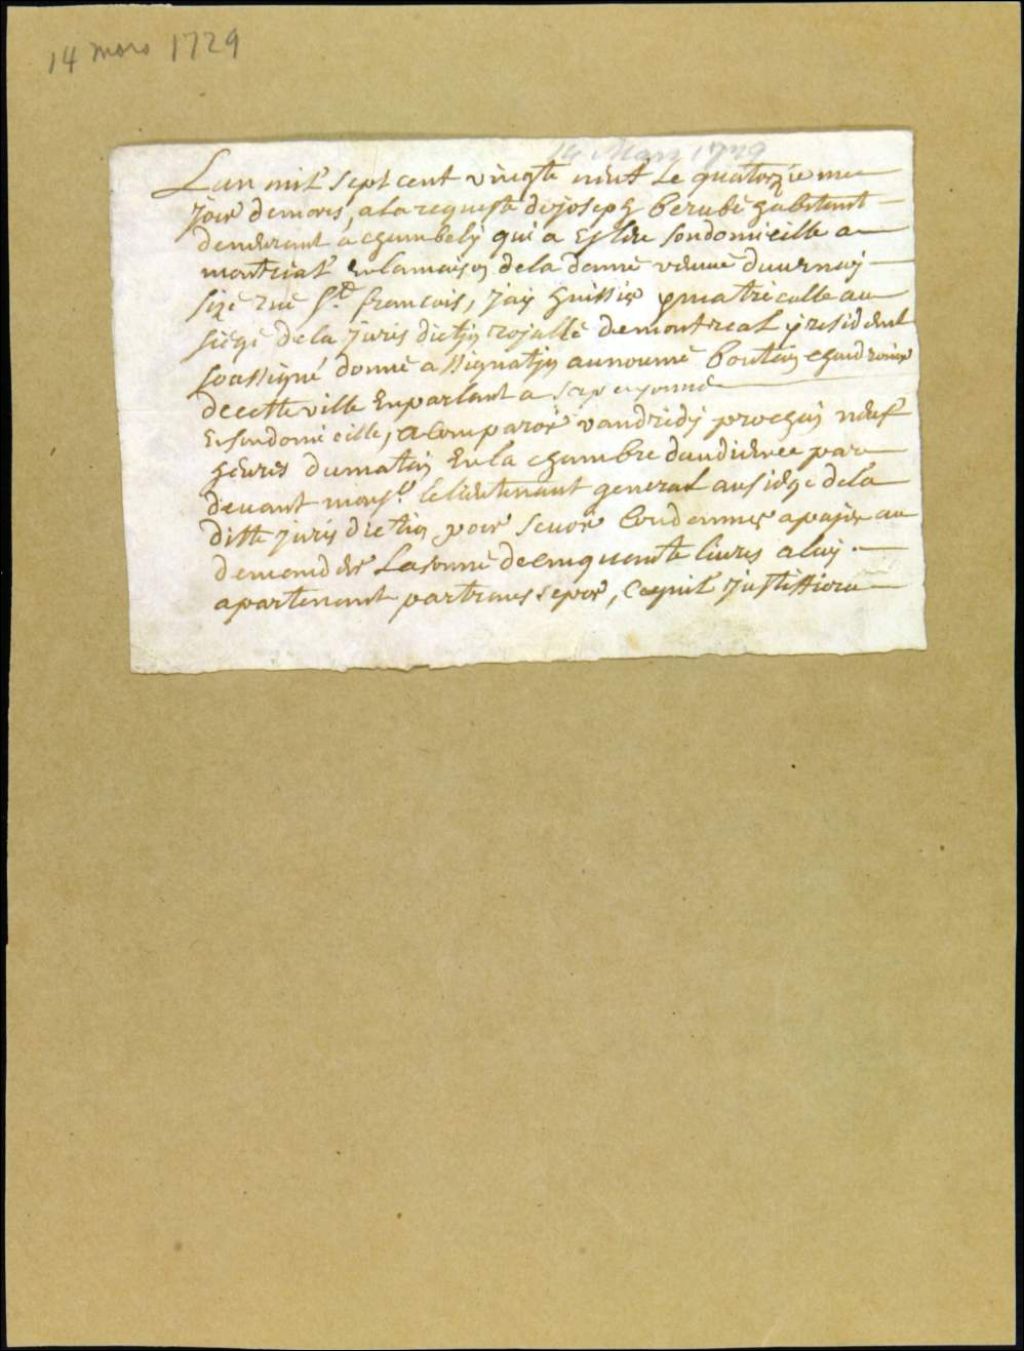 14 mars 1729
14 Mars 1729
Lan mil sept cent vingte neuf Le quatorzieme
Jour demars, ala requeste dejoseph berubé habitant
demeurant a chambely qui a Eslue sondomicille a
montreal Enlamaison dela damme veuve
size rue St. francois, Jay huissie jmatriculle au
siege dela Jurisdiction rojalle demontreal y resident
soussigné donné assignation aunommé boutin chaudronie
decette ville Enparlant a sapersonne
Ensondomicille, a Comparoir vandredy prochain neuf
heures dumatin Enla chambre daudience par
devant monsr. lelieutenant general ausiege dela
ditte jurisdiction pour seuoir Condamner apajer au
demander Lasomme decinquante liures aluy
apartenant par , Cequil Justiffiera